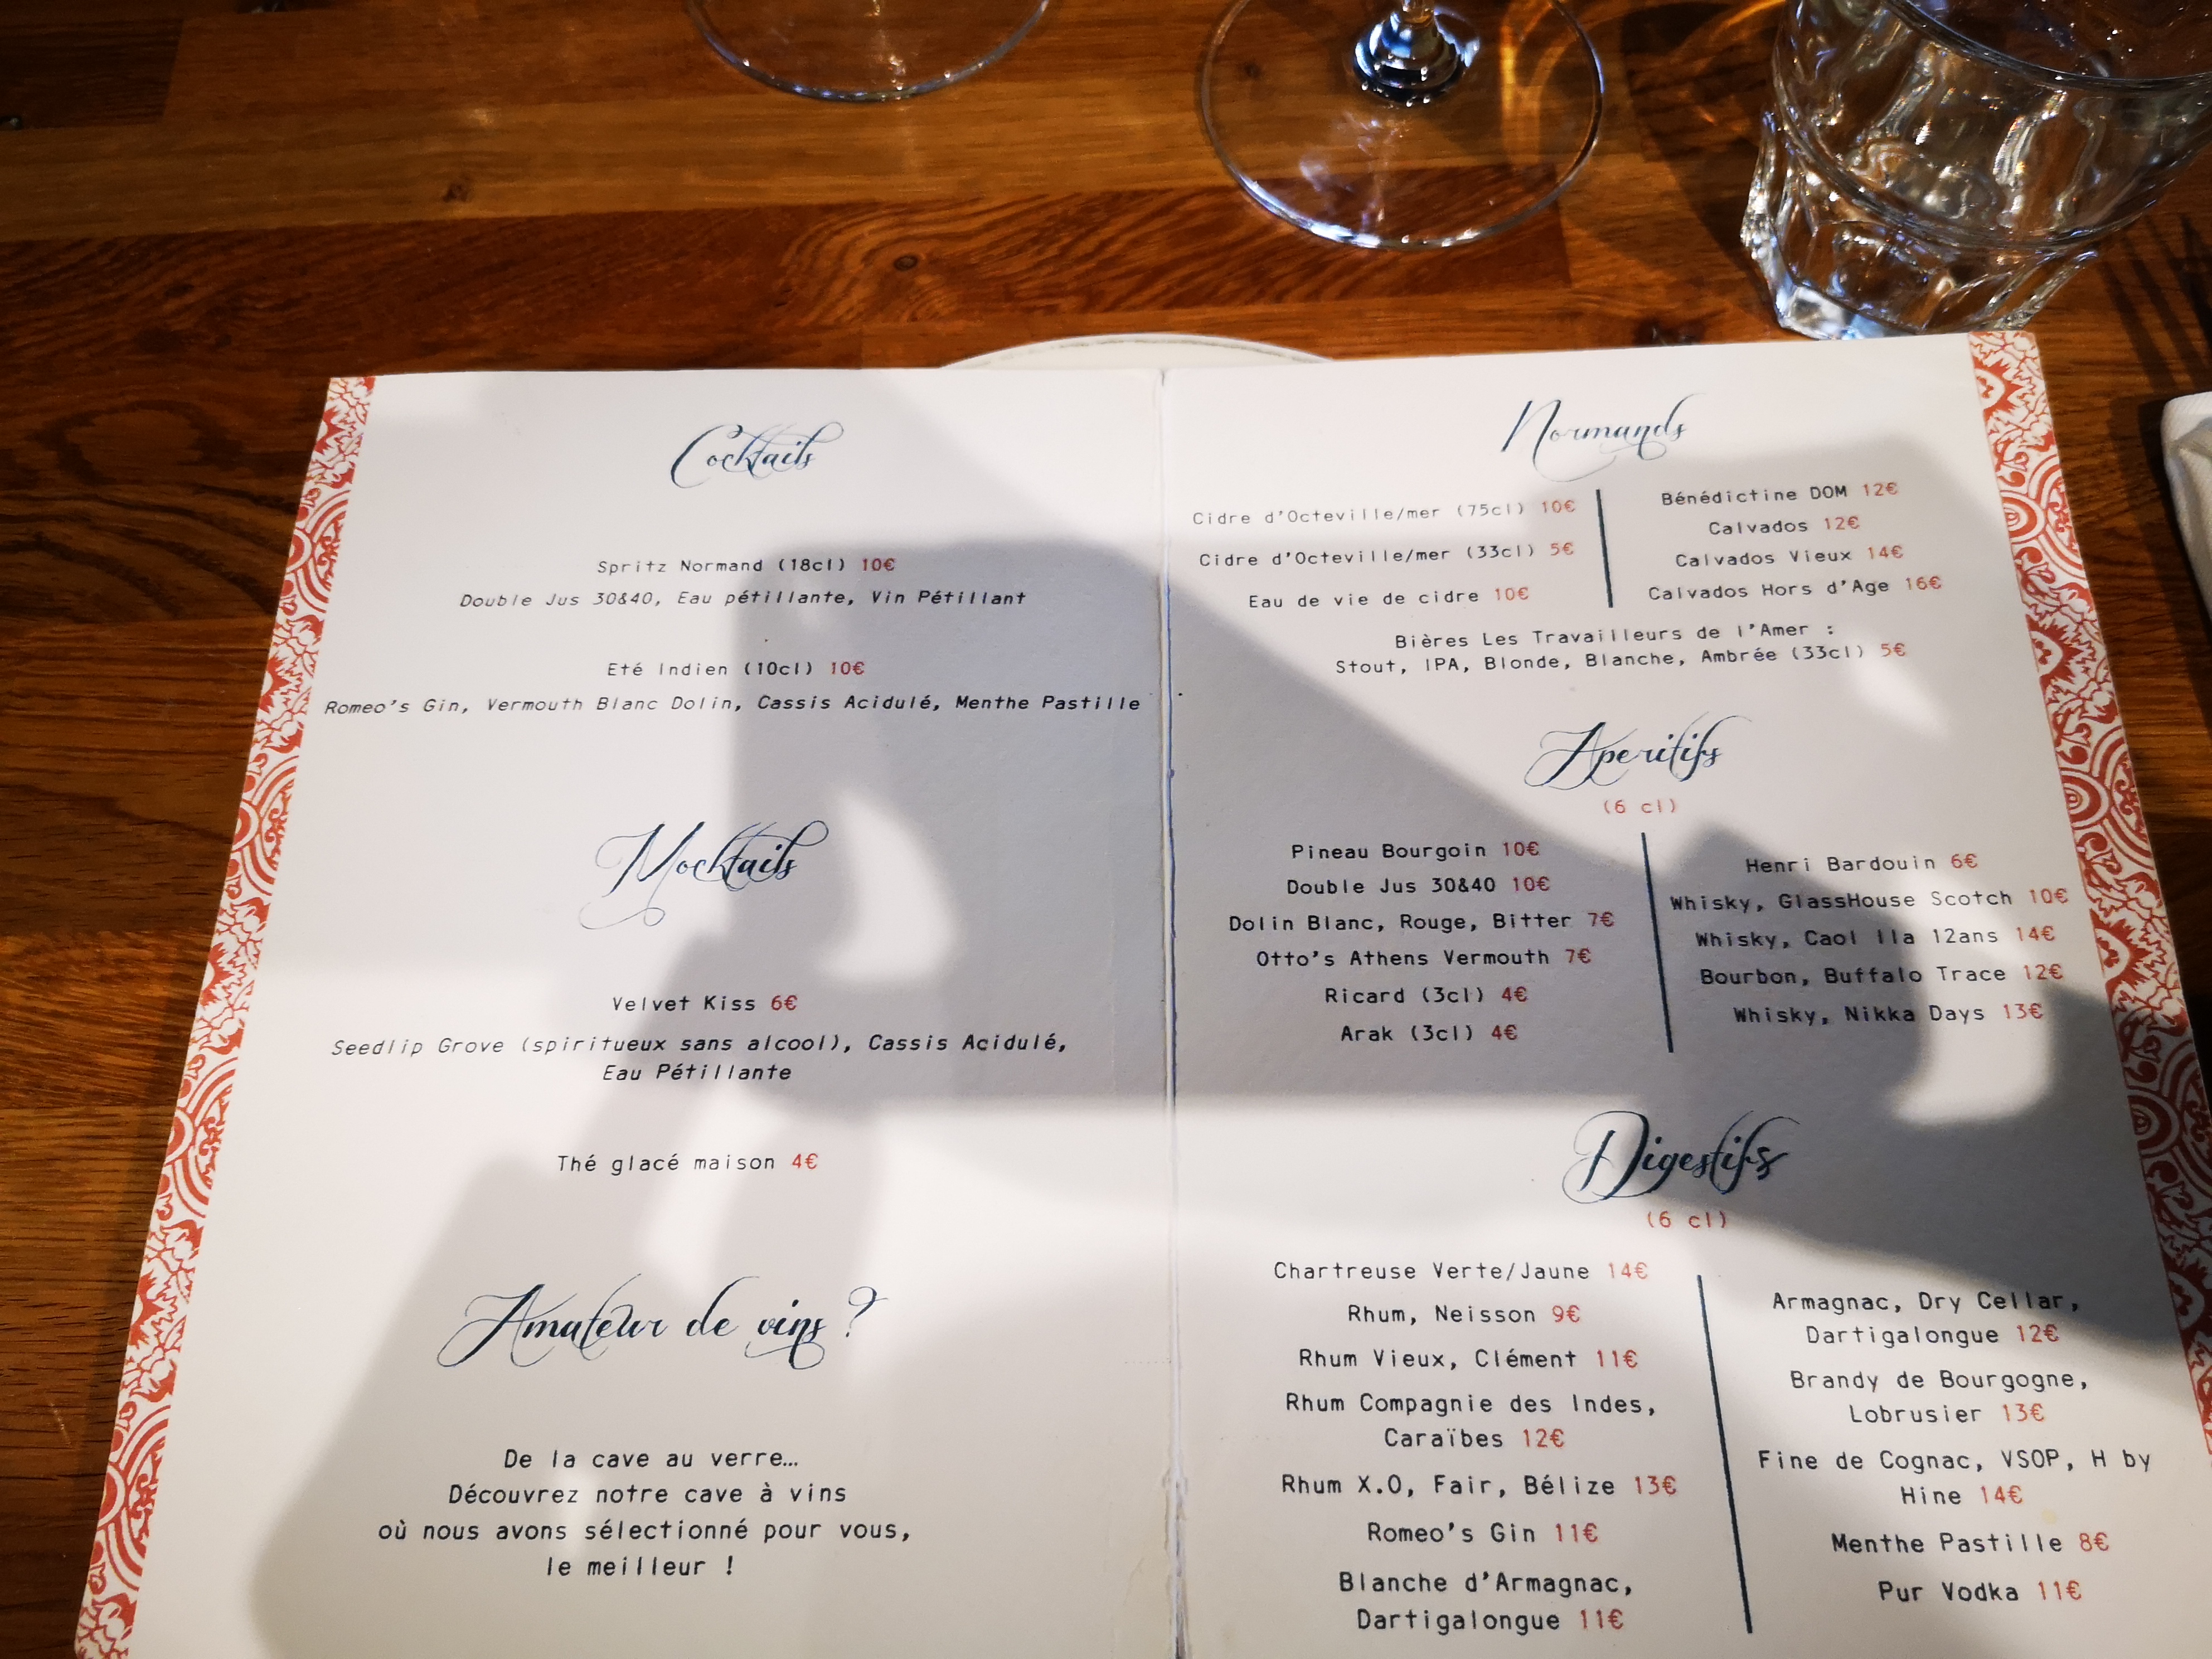 Cocktails
Spritz Normand (18cl) 10€
Double Jus 30&40, Eau pétillante, Vin Pétillant
Eté Indien (10cl) 10€
Romeo's Gin, Vermouth Blanc Dolin, Cassis Acidulé, Menthe Pastille
Mocktails
Velvet Kiss 6€
Seedlip Grove (spiritueux sans alcool), Cassis Acidulé,
Eau Pétillante
Thé glacé maison 4€
Amateur de vins ?
De la cave au verre…
Découvrez notre cave à vins
où nous avons sélectionné pour vous,
le meilleur !
Normands
Cidre d'Octeville/mer (75cl) 10€
Cidre d'Octeville/mer (33cl) 5€
Eau de vie de cidre 10€
Bénédictine DOM 12€
Calvados 12€
Calvados Vieux 14€
Calvados Hors d'Age 16€
Bières Les Travailleurs de l'Amer :
Stout, IPA, Blonde, Blanche, Ambrée (33cl) 5€
Aperitifs
(6 cl)
Pineau Bourgoin 10€
Double Jus 30&40 10€
Dolin Blanc, Rouge, Bitter 7€
Otto's Athens Vermouth 7€
Ricard (3cl) 4€
Arak (3cl) 4€
Henri Bardouin 6€
Whisky, GlassHouse Scotch 10€
Whisky, Caol Ila 12ans 14€
Bourbon, Buffalo Trace 12€
Whisky, Nikka Days 13€
Digestifs
(6 cl)
Chartreuse Verte/Jaune 14€
Rhum, Neisson 9€
Rhum Vieux, Clément 11€
Rhum Compagnie des Indes,
Caraïbes 12€
Rhum X.O, Fair, Bélize 13€
Romeo's Gin 11€
Blanche d'Armagnac,
Dartigalongue 11€
Armagnac, Dry Cellar,
Dartigalongue 12€
Brandy de Bourgogne,
Lobrusier 13€
Fine de Cognac, VSOP, H by
Hine 14€
Menthe Pastille 8€
Pur Vodka 11€